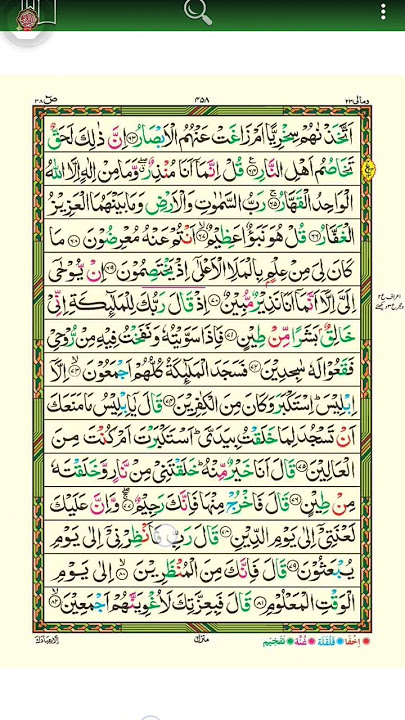 ومالی ۲۳ ۴۵۸ صٓ ۳۸
اَتَّخَذْنٰهُمْ سِخْرِيًّا اَمْ زَاغَتْ عَنْهُمُ الْاَبْصَارُ ﴿۶۳﴾ اِنَّ ذٰلِكَ لَحَقٌّ
تَخَاصُمُ اَهْلِ النَّارِ ﴿۶۴﴾ قُلْ اِنَّمَاۤ اَنَا مُنْذِرٌ ۖ وَّمَا مِنْ اِلٰهٍ اِلَّا اللّٰهُ
الْوَاحِدُ الْقَهَّارُ ﴿۶۵﴾ رَبُّ السَّمٰوٰتِ وَالْاَرْضِ وَمَا بَيْنَهُمَا الْعَزِيْزُ
الْغَفَّارُ ﴿۶۶﴾ قُلْ هُوَ نَبَؤٌا عَظِيْمٌ ﴿۶۷﴾ اَنْتُمْ عَنْهُ مُعْرِضُوْنَ ﴿۶۸﴾ مَا
كَانَ لِيَ مِنْ عِلْمٍۭ بِالْمَلَاِ الْاَعْلٰۤى اِذْ يَخْتَصِمُوْنَ ﴿۶۹﴾ اِنْ يُّوْحٰۤى
اِلَيَّ اِلَّاۤ اَنَّمَاۤ اَنَا نَذِيْرٌ مُّبِيْنٌ ﴿۷۰﴾ اِذْ قَالَ رَبُّكَ لِلْمَلٰٓئِكَةِ اِنِّيْ
خَالِقٌۢ بَشَرًا مِّنْ طِيْنٍ ﴿۷۱﴾ فَاِذَا سَوَّيْتُهٗ وَنَفَخْتُ فِيْهِ مِنْ رُّوْحِيْ
فَقَعُوْا لَهٗ سٰجِدِيْنَ ﴿۷۲﴾ فَسَجَدَ الْمَلٰٓئِكَةُ كُلُّهُمْ اَجْمَعُوْنَ ﴿۷۳﴾ اِلَّاۤ
اِبْلِيْسَ ؕ اِسْتَكْبَرَ وَكَانَ مِنَ الْكٰفِرِيْنَ ﴿۷۴﴾ قَالَ يٰۤاِبْلِيْسُ مَا مَنَعَكَ
اَنْ تَسْجُدَ لِمَا خَلَقْتُ بِيَدَيَّ ؕ اَسْتَكْبَرْتَ اَمْ كُنْتَ مِنَ
الْعَالِيْنَ ﴿۷۵﴾ قَالَ اَنَا خَيْرٌ مِّنْهُ ؕ خَلَقْتَنِيْ مِنْ نَّارٍ وَّخَلَقْتَهٗ
مِنْ طِيْنٍ ﴿۷۶﴾ قَالَ فَاخْرُجْ مِنْهَا فَاِنَّكَ رَجِيْمٌ ﴿۷۷﴾ وَّاِنَّ عَلَيْكَ
لَعْنَتِيْۤ اِلٰى يَوْمِ الدِّيْنِ ﴿۷۸﴾ قَالَ رَبِّ فَاَنْظِرْنِيْۤ اِلٰى يَوْمِ
يُبْعَثُوْنَ ﴿۷۹﴾ قَالَ فَاِنَّكَ مِنَ الْمُنْظَرِيْنَ ﴿۸۰﴾ اِلٰى يَوْمِ
الْوَقْتِ الْمَعْلُوْمِ ﴿۸۱﴾ قَالَ فَبِعِزَّتِكَ لَاُغْوِيَنَّهُمْ اَجْمَعِيْنَ ﴿۸۲﴾
اِخْفَا قَلْقَلَة غُنَّة تَفْخِيْم منزل اِلَّا عِبَادَكَ